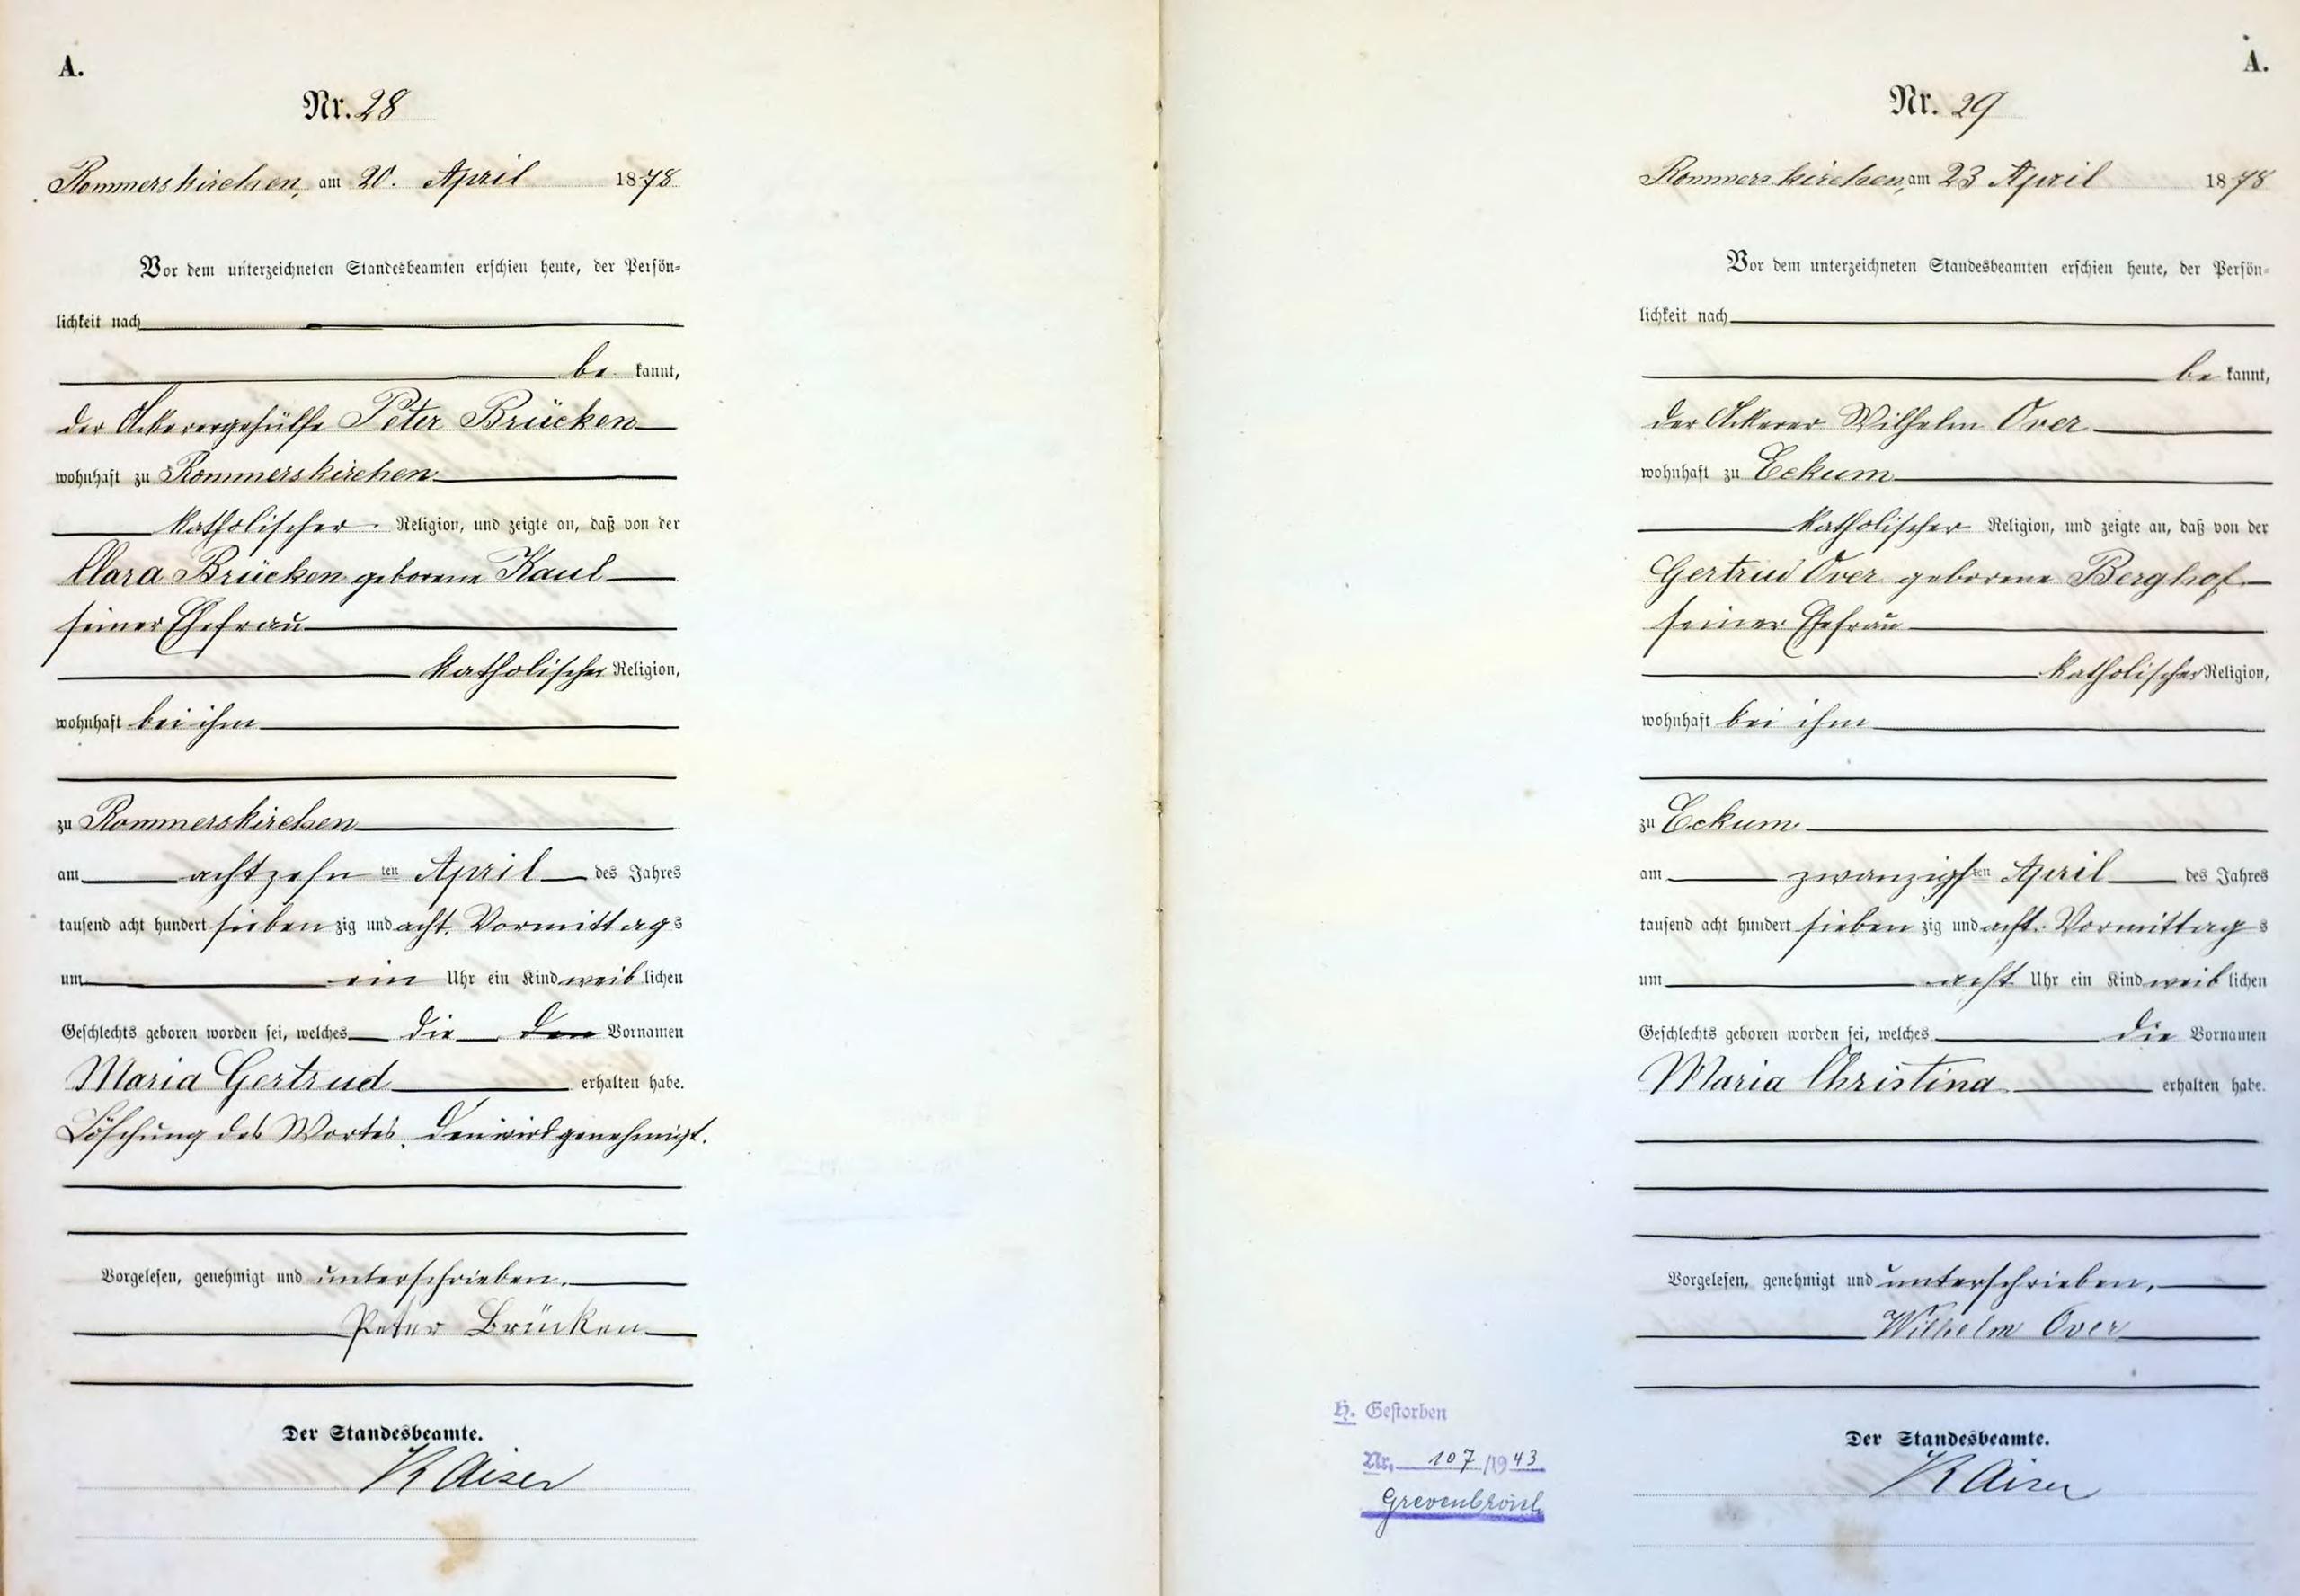 A.
Nr. 28
Rommerskirchen, am 20. April 1878
Vor dem unterzeichneten Standesbeamten erschien heute, der Persön=
lichkeit nach
be kannt,
der Ackerergehülfe Peter Brücken
wohnhaft zu Rommerskirchen
katholischer Religion, und zeigte an, daß von der
Clara Brücken geborene Kaul
seiner Ehefrau
katholischer Religion,
wohnhaft bei ihm
zu Rommerskirchen
am achtzehn ten April des Jahres
tausend acht hundert sieben zig und acht Vormittags
um ein Uhr ein Kind weib lichen
Geschlechts geboren worden sei, welches die den Vornamen
Maria Gertrud erhalten habe.
Löschung des Wortes den wird genehmigt.
Vorgelesen, genehmigt und unterschrieben.
Peter Brücken
Der Standesbeamte.
Kaiser
A.
Nr. 29
Rommerskirchen, am 23 April 1878
Vor dem unterzeichneten Standesbeamten erschien heute, der Persön=
lichkeit nach
be kannt,
der Ackerer Wilhelm Over
wohnhaft zu Eckum
katholischer Religion, und zeigte an, daß von der
Gertrud Over geborene Berghof
seiner Ehefrau
katholischer Religion,
wohnhaft bei ihm
zu Eckum
am zwanzigsten April des Jahres
tausend acht hundert sieben zig und acht Vormittags
um acht Uhr ein Kind weib lichen
Geschlechts geboren worden sei, welches die Vornamen
Maria Christina erhalten habe.
Vorgelesen, genehmigt und unterschrieben.
Wilhelm Over
Der Standesbeamte.
Kaiser
H. Gestorben
Nr. 107/1943
Grevenbroich